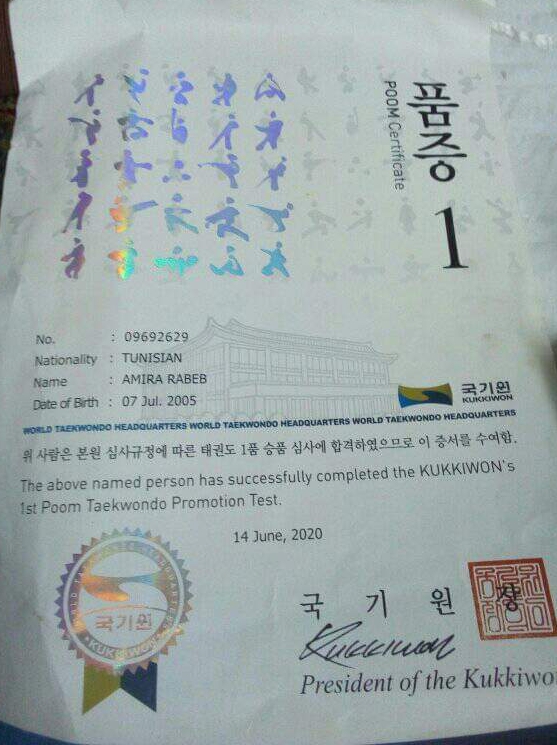 품증
POOM Certificate
1
No. : 09692629
Nationality : TUNISIAN
Name : AMIRA RABEB
Date of Birth : 07 Jul. 2005
국기원
KUKKIWON
WORLD TAEKWONDO HEADQUARTERS WORLD TAEKWONDO HEADQUARTERS WORLD TAEKWONDO HEADQUARTERS
위 사람은 본원 심사규정에 따른 태권도 1품 승품 심사에 합격하였으므로 이 증서를 수여함.
The above named person has successfully completed the KUKKIWON's
1st Poom Taekwondo Promotion Test.
14 June, 2020
국기원
KUKKIWON
국 기 원 장
Kukkiwon
President of the Kukkiwo